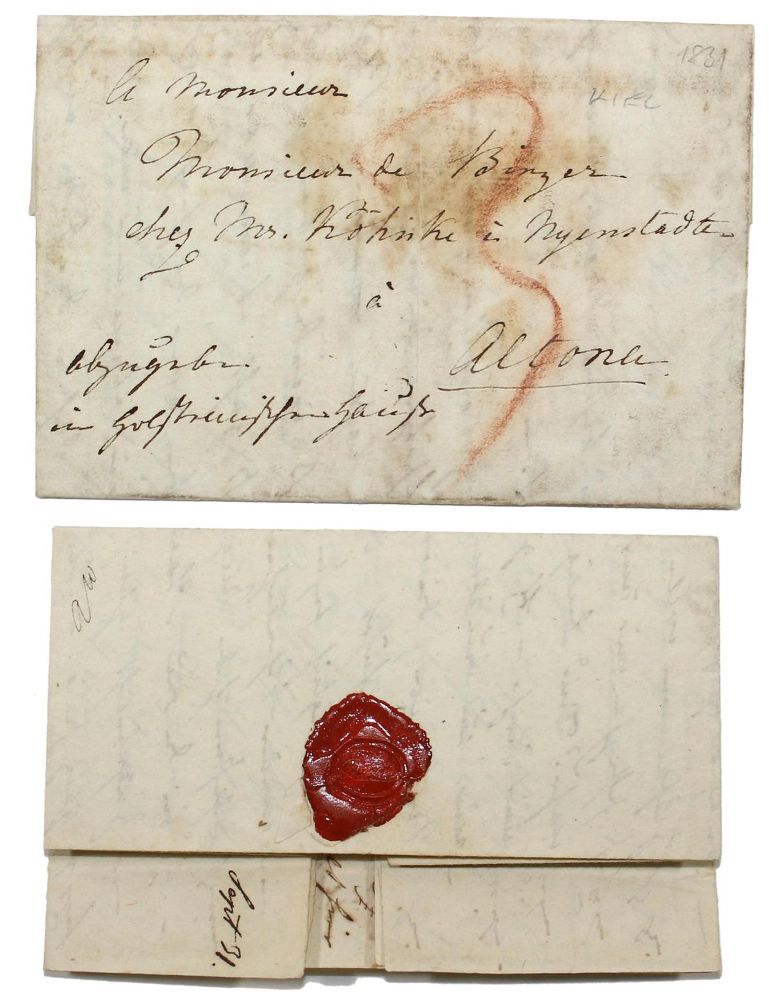 1831
KIEL
A Monsieur
Monsieur de Binzer
chez Mr. Köhnke à Nyenstädten
à
Altona
3
abzugeben
im Holsteinischen Hause
Sept 31.